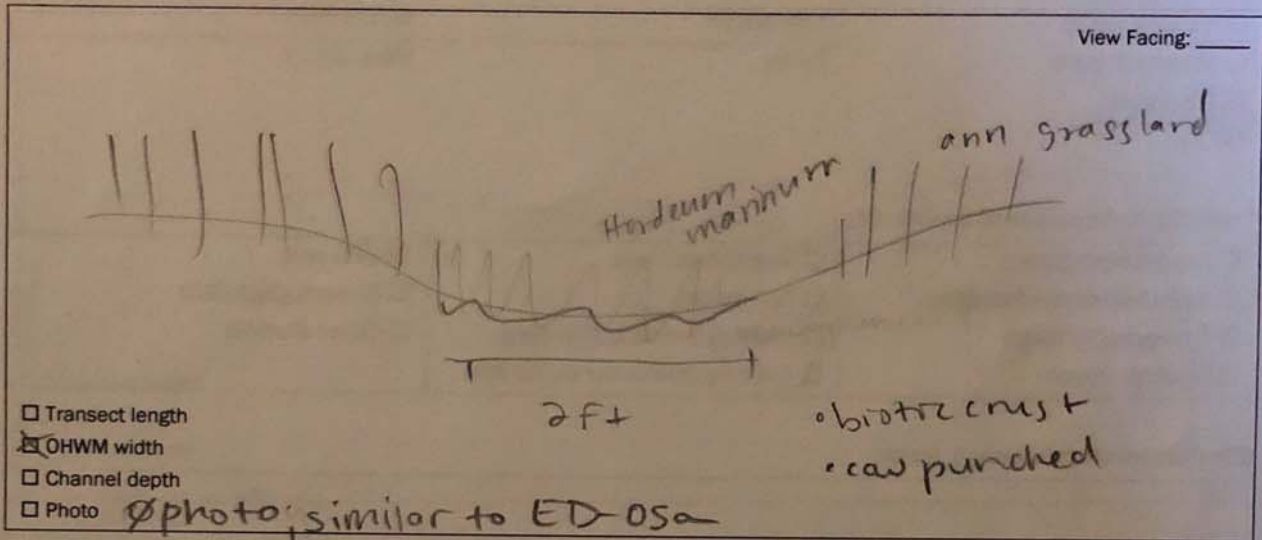 View Facing:
ann grassland
Hordeum
marinum
2 ft
☐ Transect length
☒ OHWM width
☐ Channel depth
☐ Photo Øphoto; similar to ED-05a
• biotic crust
• cow punched